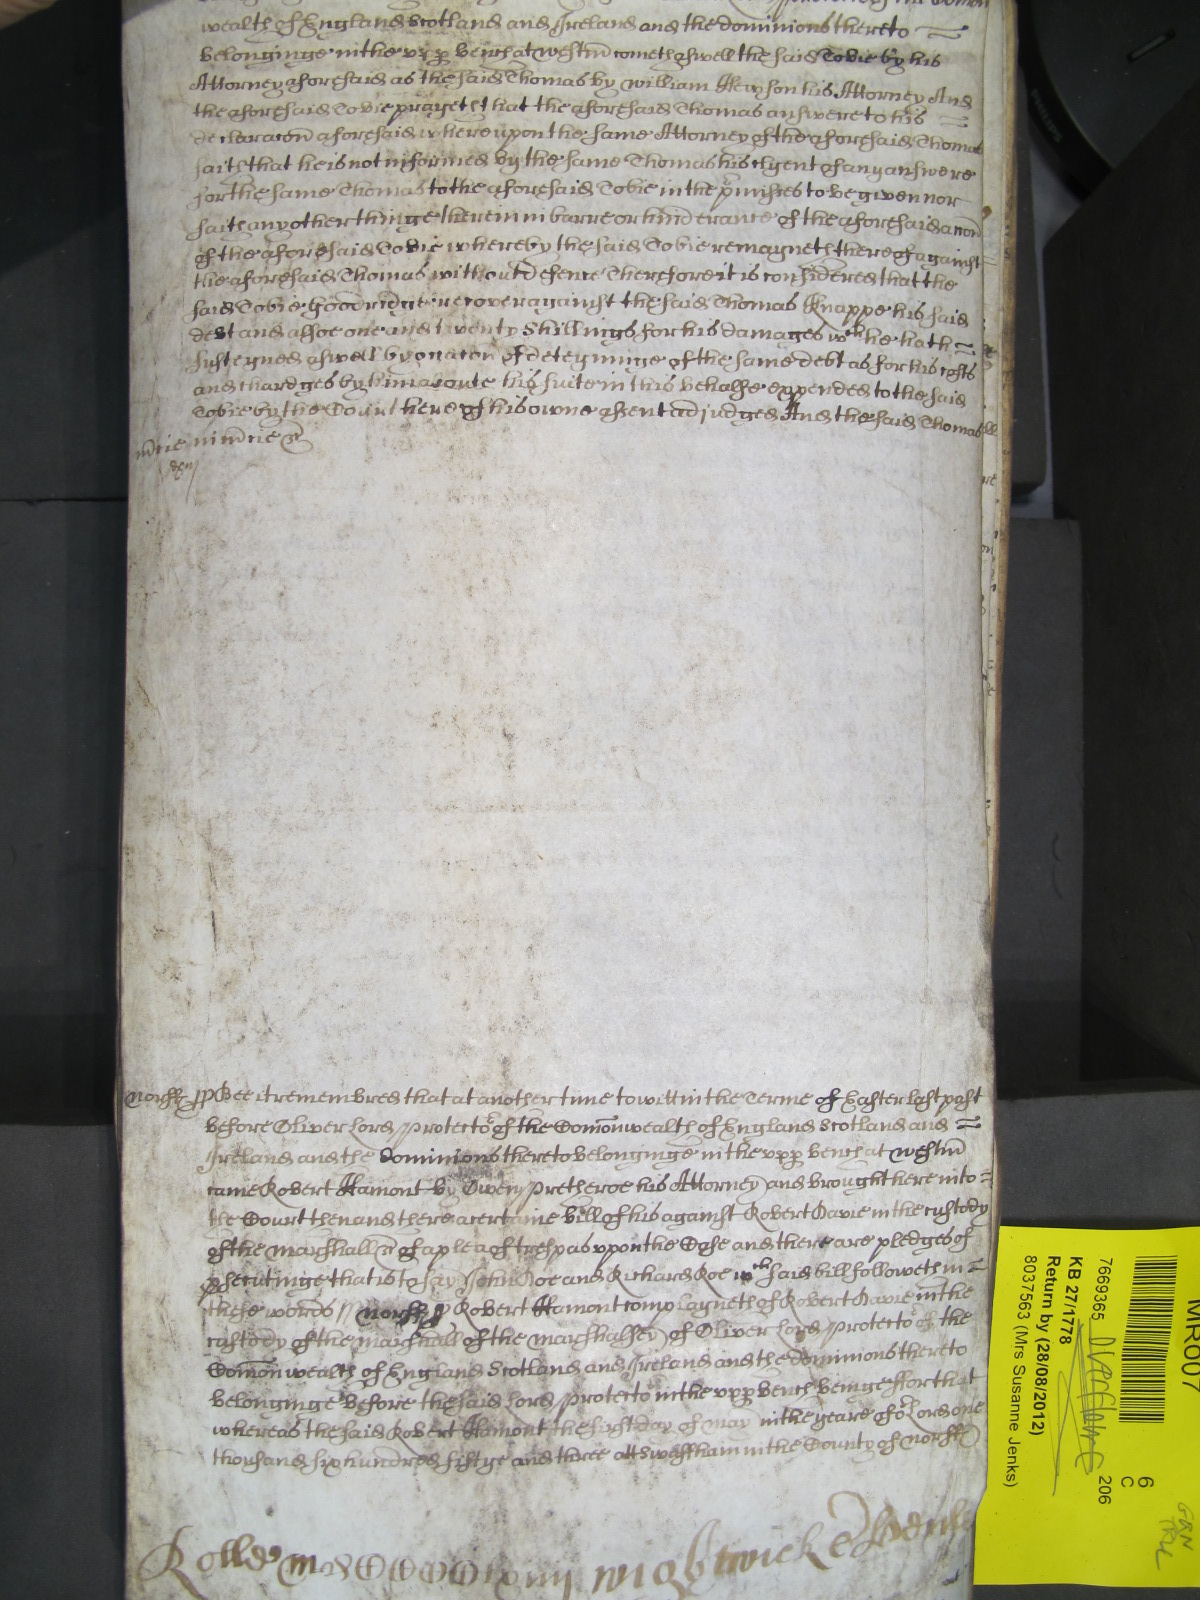 wealth of England Scotland and Ireland and the dominions thereto
belonginge in the upp bench at westm cometh aswell the said Tobie by his
Attorney aforesaid as the said Thomas by william Hewson his Attorney And
the aforesaid Tobie prayeth that the aforesaid Thomas answere to his
declaracon aforesaid whereupon the same Attorney of the aforesaid Thomas
saith that he is not informed by the same Thomas his clyent of any answere
for the same Thomas to the aforesaid Tobie in the pmisses to be given nor
saith any other thinge therein in barre or hinderance of the aforesaid accon
of the aforesaid Tobie whereby the said Tobie remayneth thereof against
the aforesaid Thomas without defence Therefore it is considered that the
said Tobie Goodridge recover against the said Thomas Knappe his said
debt and alsoe one and twenty Shillings for his damages wch he hath
susteyned aswell by occacon of deteyninge of the same debt as for his costs
and chardges by him aboute his suite in this behalfe expended to the said
Tobie by the Court here of his owne assent adjudged And the said Thomas
in mcie &
Norff Bee it remembred that at another time to witt in the Terme of Easter last past
before Oliver Lord Protector of the Comonwealth of England Scotland and
Ireland and the dominions thereto belonginge in the upp bench at westm
came Robert Hamont by Owen Pretheroe his Attorney and brought here into
the Court then and there a certaine bill of his against Robert Davie in the custody
of the marshall & of a plea of trespas upon the Case and there are pledges of
psecutinge that is to say John Doe and Richard Roe wch said bill followeth in
these words Norff Robert Hamont complayneth of Robert Davie in the
custody of the marshall of the marshalsey of Oliver Lord Protector of the
Comonwealth of England Scotland and Ireland and the dominions thereto
belonginge before the said Lord Protector in the upp bench beinge ffor that
whereas the said Robert Hamont the first day of may in the yeare of or Lord one
thousand six hundred fiftye and three att Swaffham in the County of Norff
Rolle wightwicke
MR007
6
C
206
7669365
KB 27/1778
Return by (28/08/2012)
8037563 (Mrs Susanne Jenks)
PHILIPS